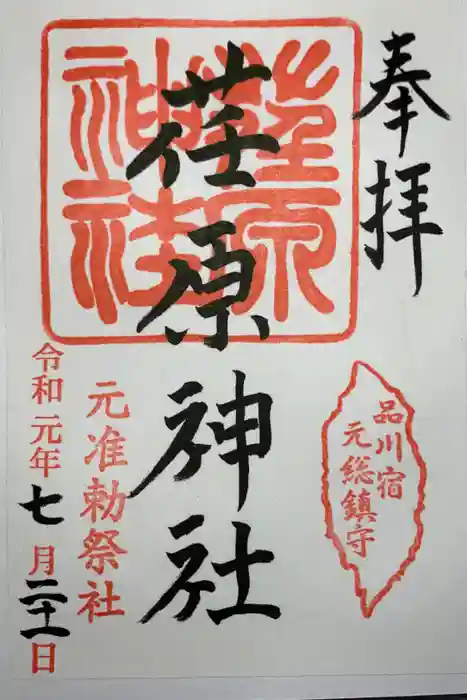 奉拝
荏原神社
荏原
神社
品川宿
元総鎮守
元准勅祭社
令和元年七月二十一日